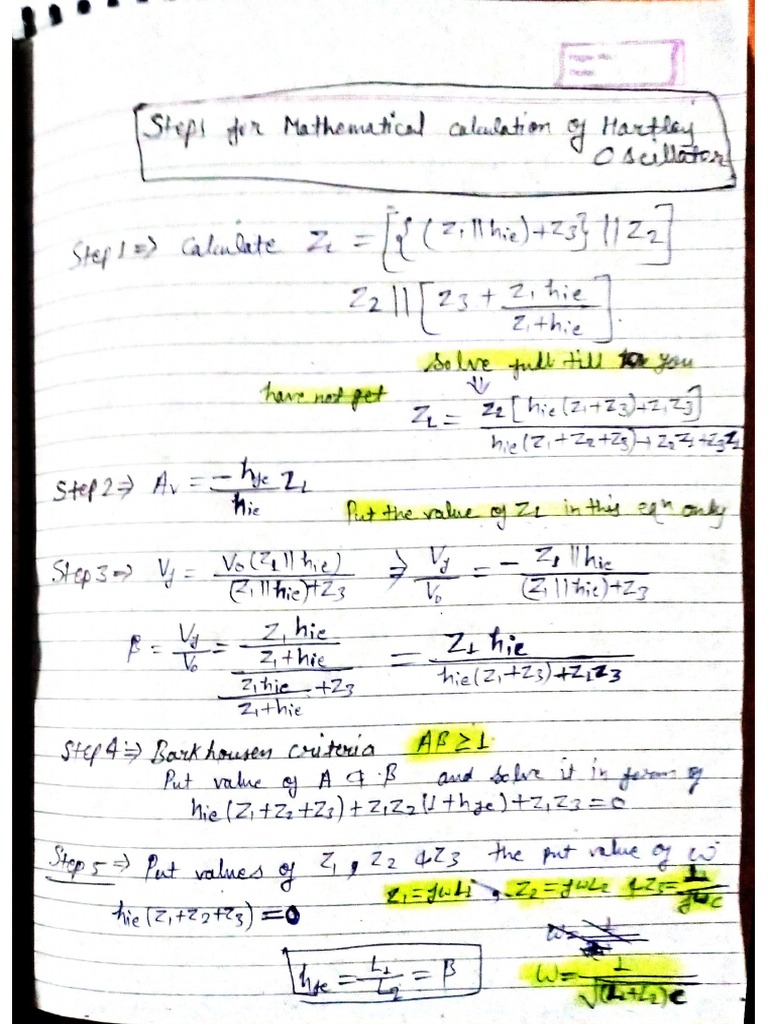 Steps for Mathematical calculation of Hartley
Oscillator
Step 1 ⇒ Calculate Z_L = [{(Z1 || hie) + Z3} || Z2]
Z2 || [Z3 + Z1 hie / Z1 + hie].
Solve full till you
have not get
⇓
Z_L = Z2 [hie (Z1 + Z3) + Z1Z3] / hie (Z1 + Z2 + Z3) + Z2Z1 + Z3Z1
Step 2 ⇒ Av = -hfe / hie Z_L
Put the value of Z_L in this eqn only
Step 3 ⇒ Vf = Vo (Z1 || hie) / (Z1 || hie) + Z3 ⇒ Vf / Vo = - Z1 || hie / (Z1 || hie) + Z3
β = Vf / Vo = (Z1 hie / Z1 + hie) / (Z1 hie / Z1 + hie + Z3) = Z1 hie / hie (Z1 + Z3) + Z1Z3
Step 4 ⇒ Barkhousen criteria Aβ ≥ 1
Put value of A & β and solve it in form of
hie (Z1 + Z2 + Z3) + Z1Z2 (1 + hfe) + Z1Z3 = 0
Step 5 ⇒ Put values of Z1, Z2 & Z3 the put value of ω
Z1 = jωL1, Z2 = jωL2 & Z3 = 1 / jωC
hie (Z1 + Z2 + Z3) = 0
hfe = L1 / L2 = β
ω = 1 / √(L1 + L2) C